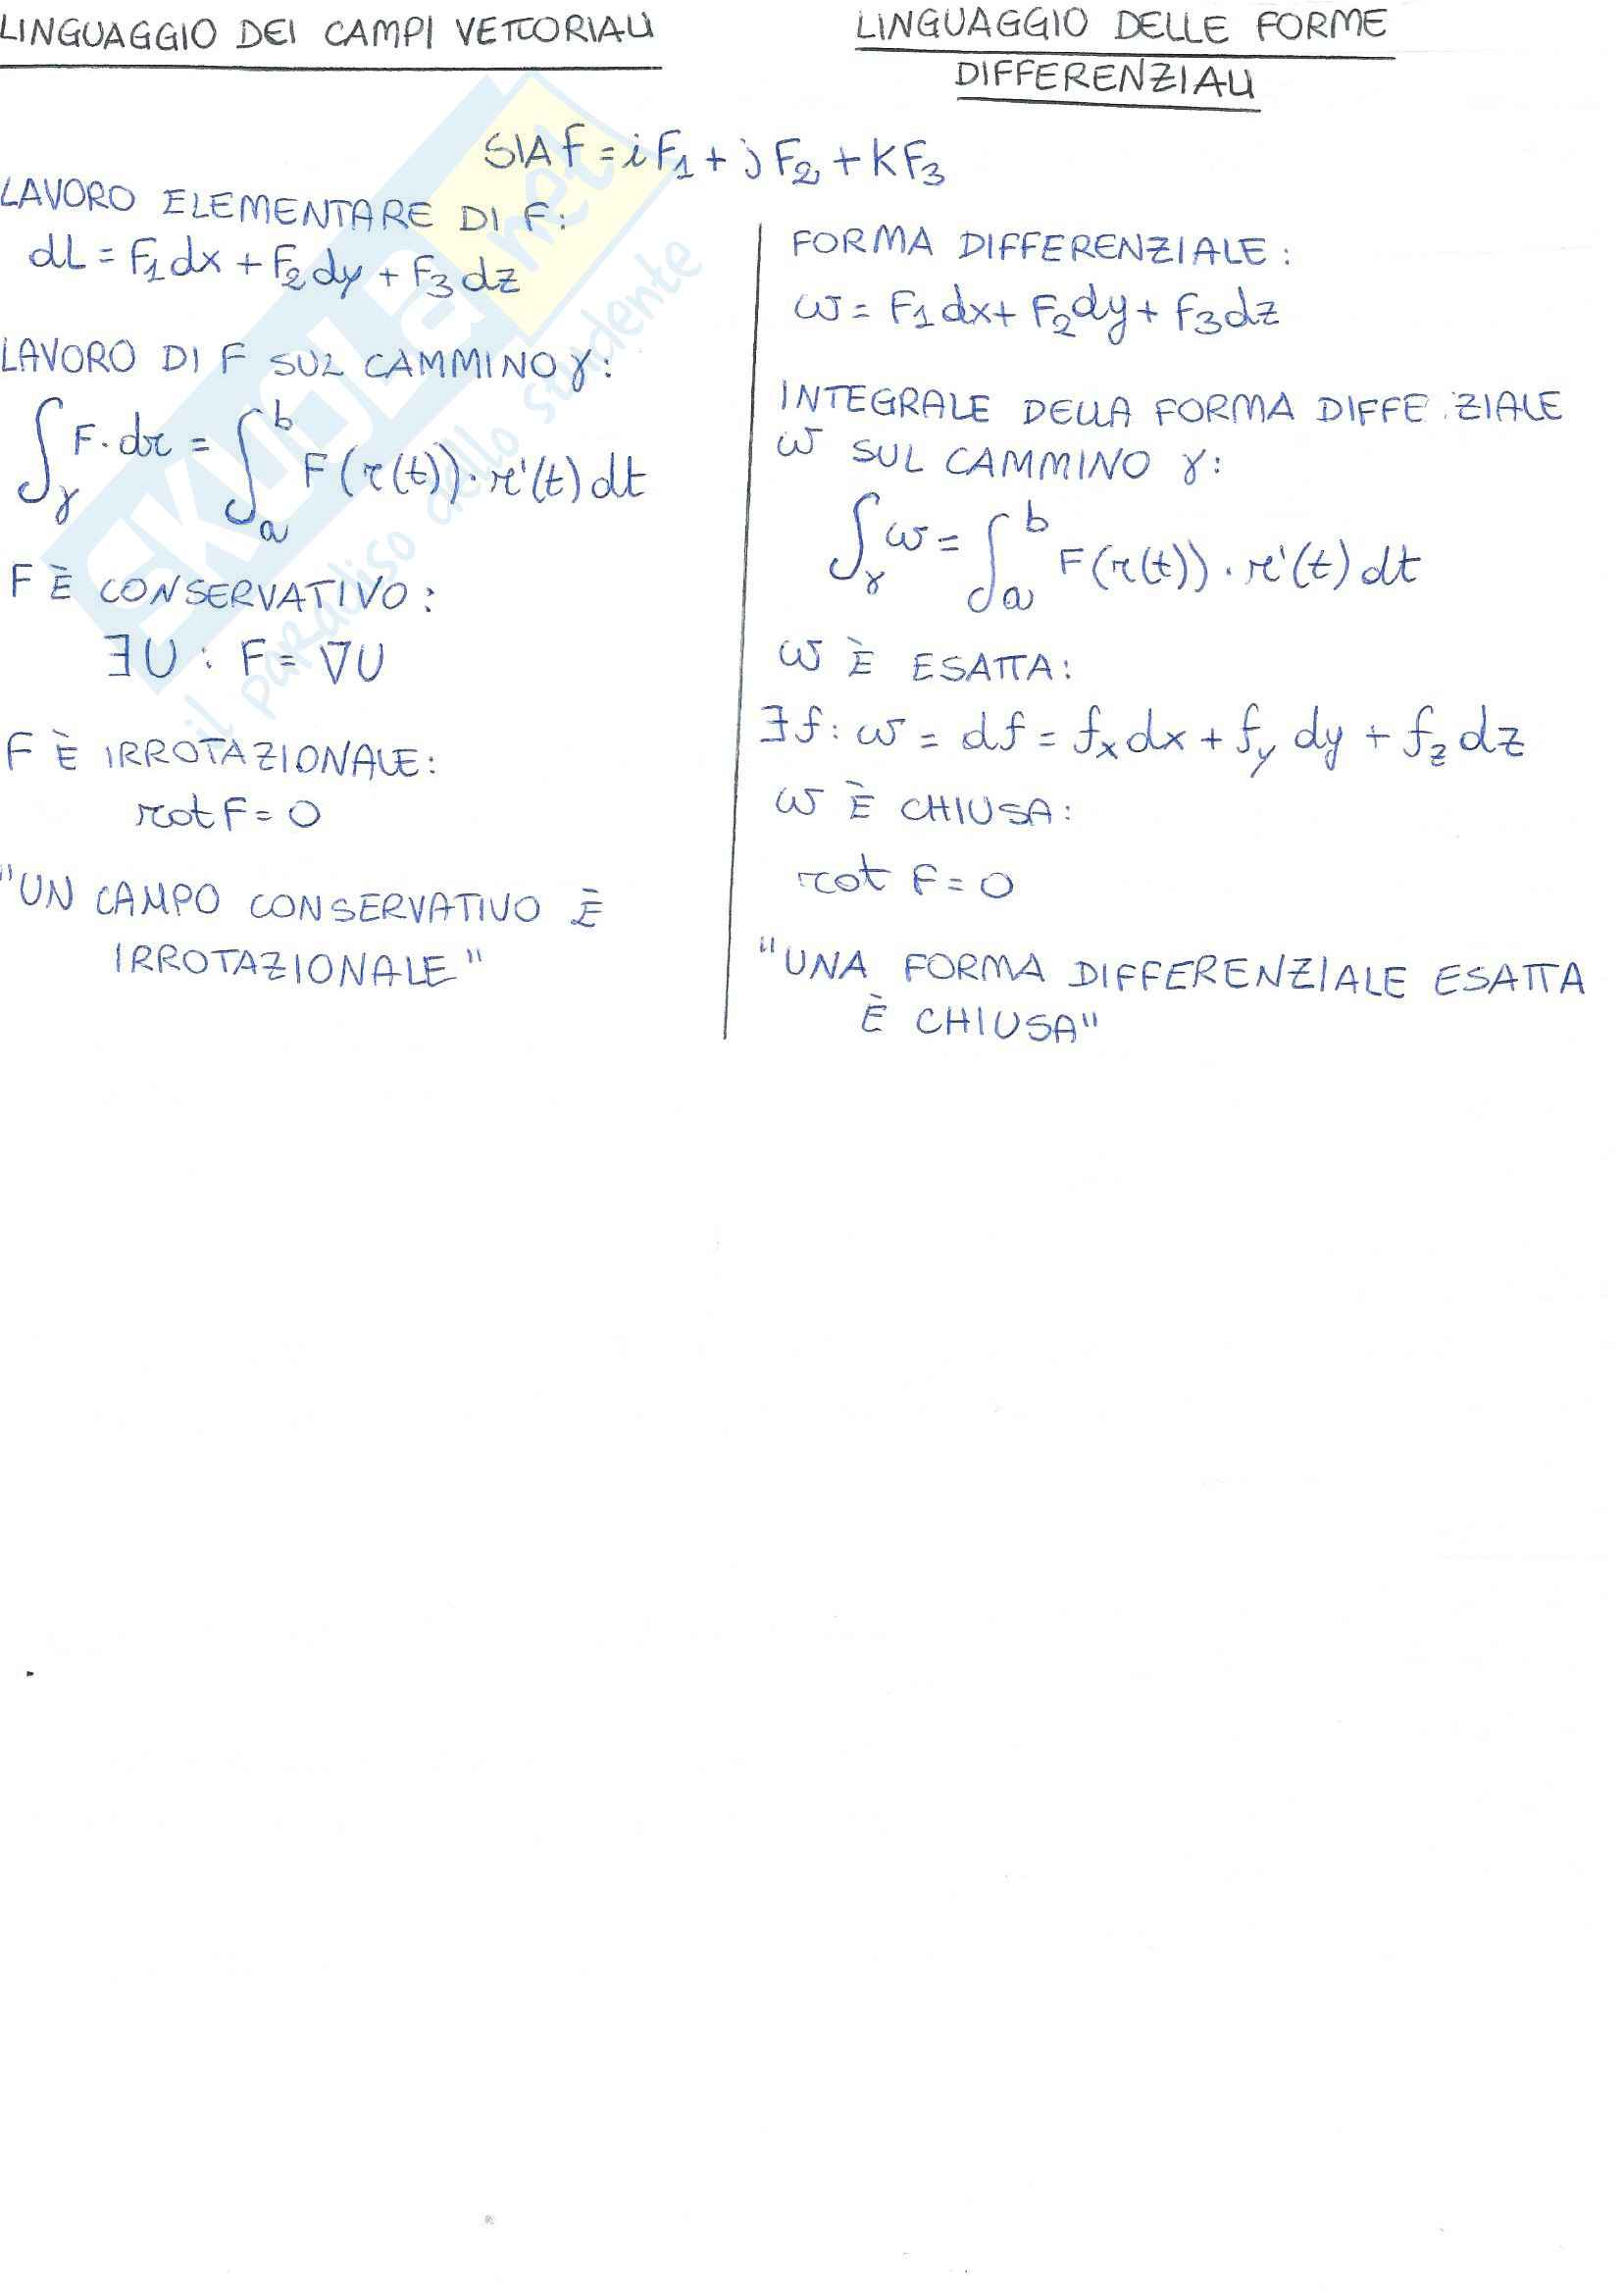 LINGUAGGIO DEI CAMPI VETTORIALI
LINGUAGGIO DELLE FORME
DIFFERENZIALI
SIA F = iF₁ + jF₂ + kF₃
LAVORO ELEMENTARE DI F:
dL = F₁dx + F₂dy + F₃dz
LAVORO DI F SUL CAMMINO γ:
∫_γ F·dr = ∫_a^b F(r(t))·r'(t)dt
F È CONSERVATIVO:
∃U : F = ∇U
F È IRROTAZIONALE:
rot F = 0
"UN CAMPO CONSERVATIVO È
IRROTAZIONALE"
FORMA DIFFERENZIALE:
ω = F₁dx + F₂dy + F₃dz
INTEGRALE DELLA FORMA DIFFE ZIALE
ω SUL CAMMINO γ:
∫_γ ω = ∫_a^b F(r(t))·r'(t)dt
ω È ESATTA:
∃f: ω = df = fₓdx + f_y dy + f_z dz
ω È CHIUSA:
rot F = 0
"UNA FORMA DIFFERENZIALE ESATTA
È CHIUSA"
SKUOLA.net
il paradiso dello studente